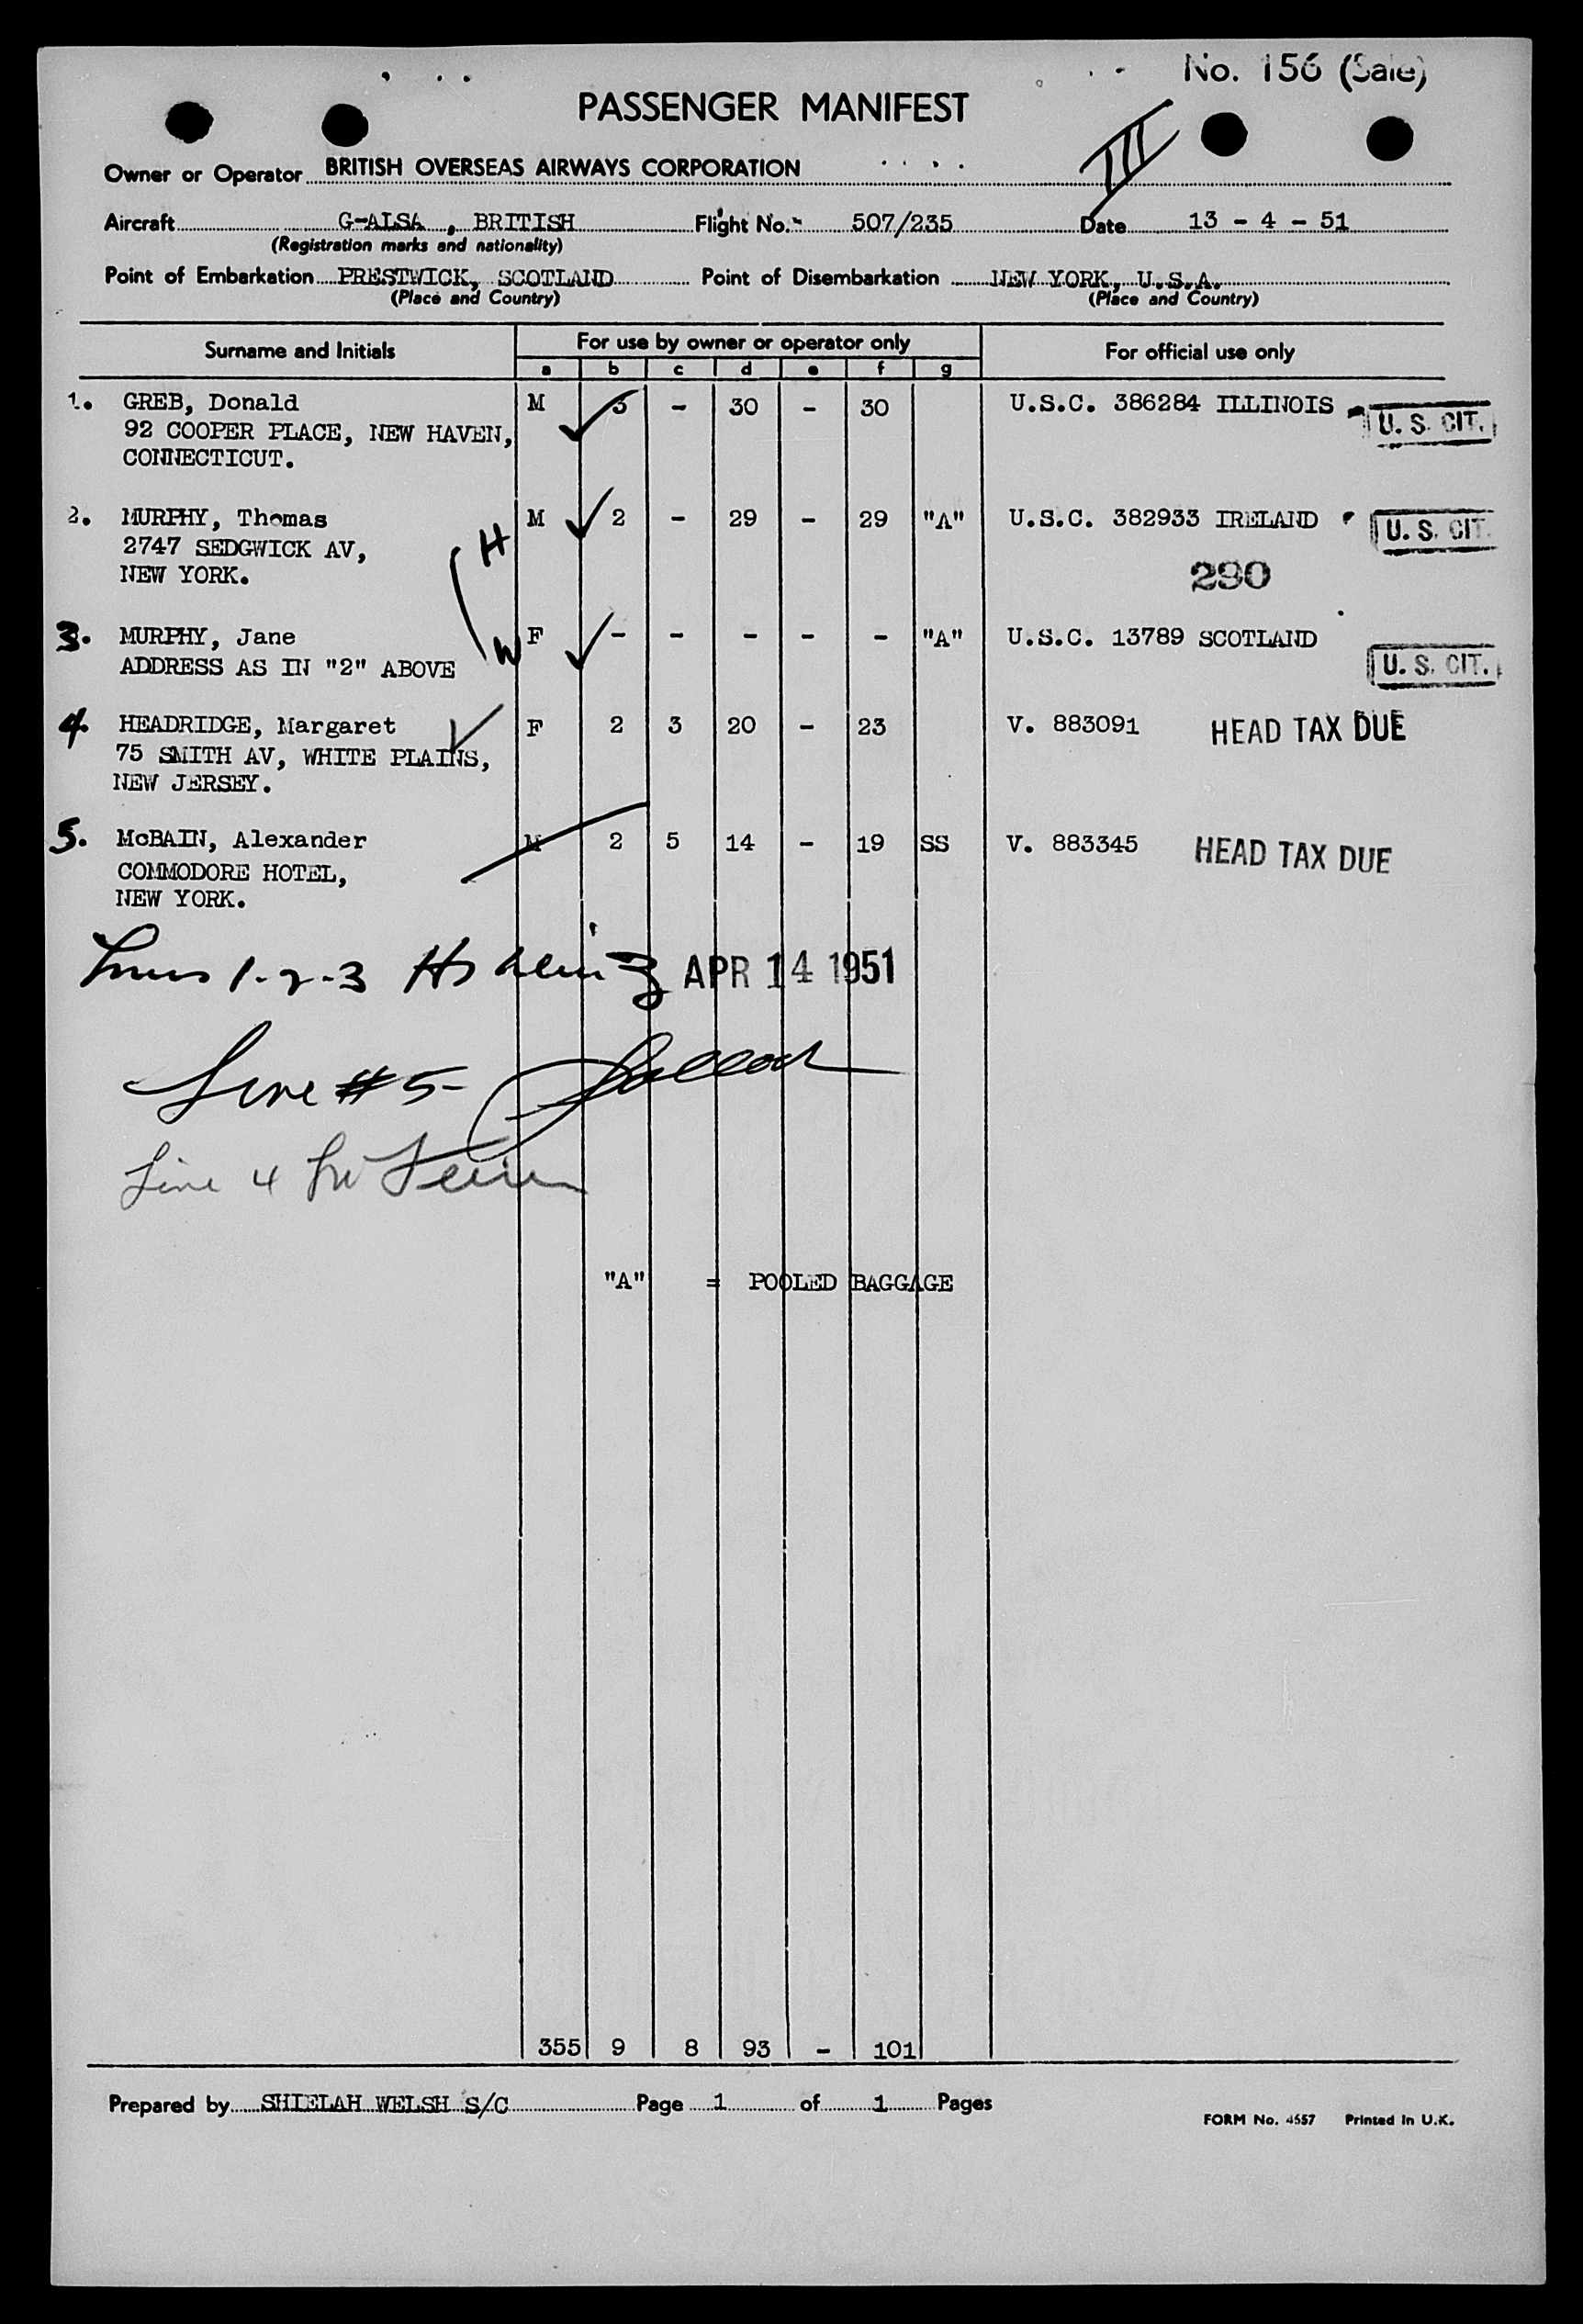 No. 156 (Sale)
PASSENGER MANIFEST
III
Owner or Operator BRITISH OVERSEAS AIRWAYS CORPORATION
Aircraft G-ALSA , BRITISH Flight No. 507/235 Date 13 - 4 - 51
(Registration marks and nationality)
Point of Embarkation PRESTWICK, SCOTLAND Point of Disembarkation NEW YORK, U.S.A.
(Place and Country) (Place and Country)
Surname and Initials For use by owner or operator only For official use only
a b c d e f g
1. GREB, Donald M 3 - 30 - 30 U.S.C. 386284 ILLINOIS U. S. CIT.
92 COOPER PLACE, NEW HAVEN,
CONNECTICUT.
2. MURPHY, Thomas M 2 - 29 - 29 "A" U.S.C. 382933 IRELAND U. S. CIT.
2747 SEDGWICK AV, H
NEW YORK. 290
3. MURPHY, Jane W F - - - - - "A" U.S.C. 13789 SCOTLAND
ADDRESS AS IN "2" ABOVE U. S. CIT.
4. HEADRIDGE, Margaret F 2 3 20 - 23 V. 883091 HEAD TAX DUE
75 SMITH AV, WHITE PLAINS,
NEW JERSEY.
5. McBAIN, Alexander M 2 5 14 - 19 SS V. 883345 HEAD TAX DUE
COMMODORE HOTEL,
NEW YORK.
Lines 1-2-3 APR 14 1951
Line #5-
Line 4
"A" = POOLED BAGGAGE
355 9 8 93 - 101
Prepared by SHIELAH WELSH S/C Page 1 of 1 Pages
FORM No. 4557 Printed in U.K.